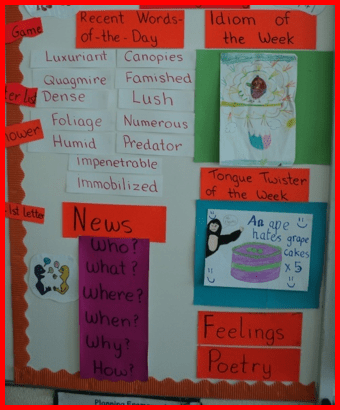 Game
er list
ower
1st letter
Recent Words-
of-the-Day
Luxuriant
Canopies
Quagmire
Famished
Dense
Lush
Foliage
Numerous
Humid
Predator
Impenetrable
Immobilized
News
Who?
What?
Where?
When?
Why?
How?
Idiom of
the Week
Tongue Twister
of the Week
An ape
hates grape
cakes
x 5
Feelings
Poetry
Planning